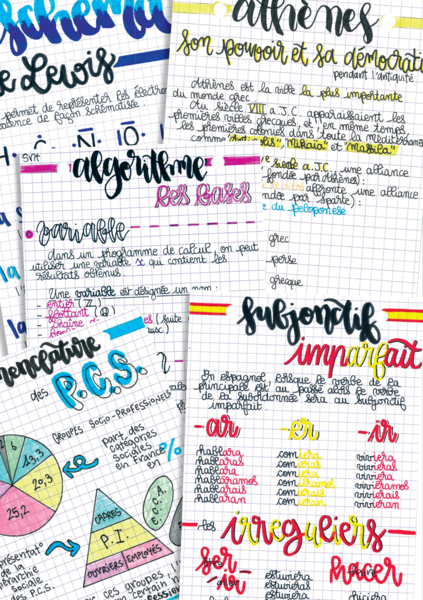 schéma
de Lewis
permet de représenter les électrons
valence de façon schématisée
athènes
son pouvoir et sa démocrati
pendant l'antiquité
Athènes est la ville la plus importante
du monde grec
Au siècle VIII a.J.C apparaissaient les
premières villes grecques, et en même temps
les premières colonies dans toute la Méditerranée
comme "Antipolis", "Nikaia" et "Massilia"
siècle a.J.C, une alliance
fondée par Athènes):
affronte une alliance
dée par Sparte):
e du péloponèse
grec
perse
grecque
SNT
algorithme
les bases
variable
dans un programme de calcul, on peut
utiliser une variable x qui contient les
résultats obtenus
Une variable est désignée un nom:
- entier (Z)
- flottant (Q)
- chaîne
(suite
subjonctif
imparfait
En espagnol, lorsque le verbe de la
principale est au passé alors le verbe
de la subordonnée sera au subjonctif
imparfait
-ar -er -ir
hablara comiera viviera
hablaras comieras vivieras
hablara comiera viviera
habláramos comiéramos viviéramos
hablarais comierais vivierais
hablaran comieran vivieran
les
irreguliers
ser haber
estuviera
estuvieras
nomenclature
des P.C.S.
GROUPES SOCIO-PROFESSIONELS
part des
catégories
sociales
en France
en %
6
13,3
20,3
25,2
CADRES
P.I.
OUVRIERS/EMPLOYÉS
C.
A.
E.
représentat°
de la
hiérarchie
sociale
des P.C.S.
ces groupes